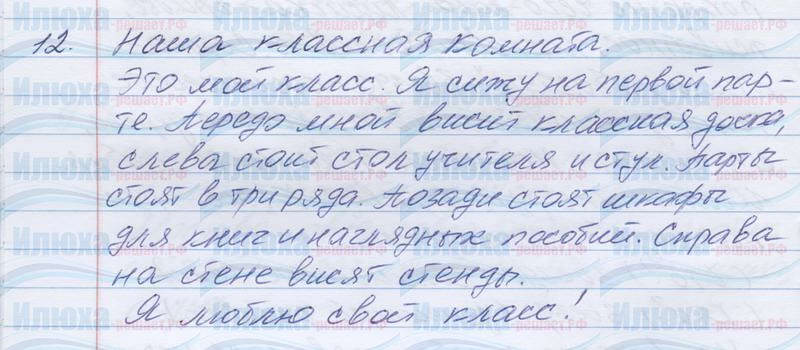 12. Наша классная комната.
Это мой класс. Я сижу на первой пар-
те. Передо мной висит классная доска,
слева стоит стол учителя и стул. Парты
стоят в три ряда. Позади стоят шкафы
для книг и наглядных пособий. Справа
на стене висят стенды.
Я люблю свой класс!